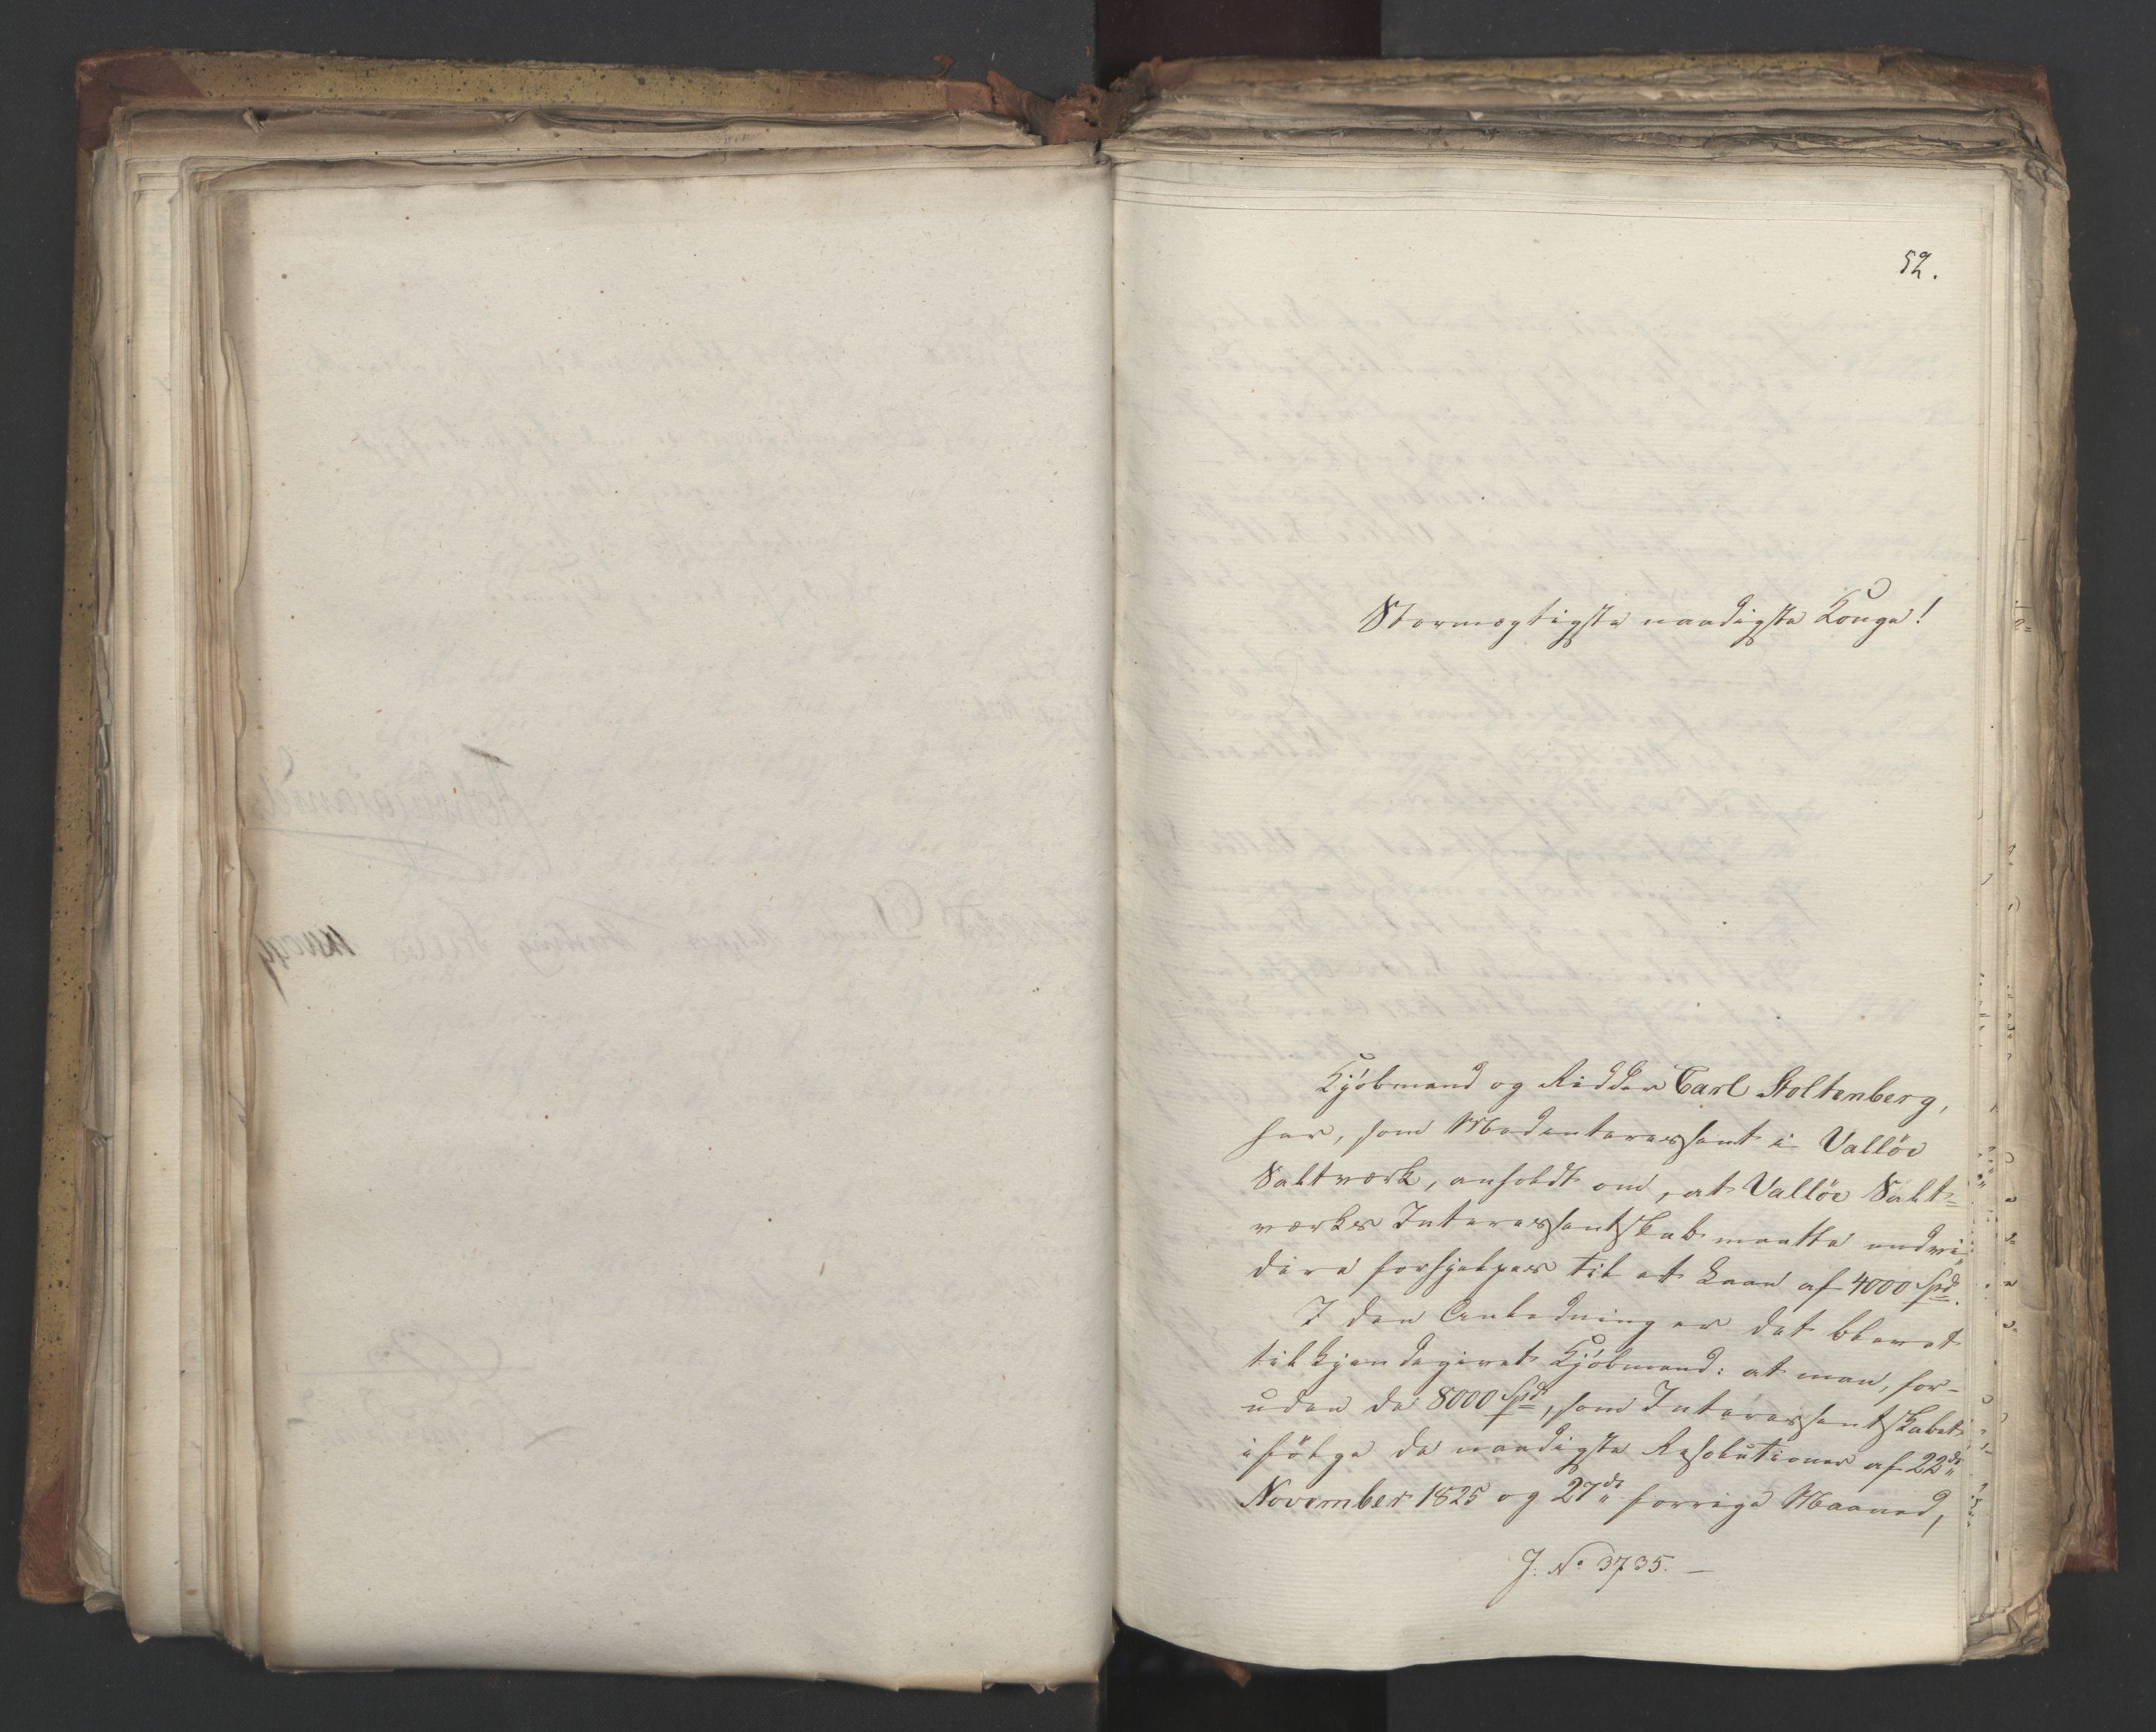 52.
Stormægtigste naadigste Konge!
Kjöbmand og Ridder Carl Stoltenberg,
har, som Medinteressent i Vallöe
Saltværk, anholdt om, at Vallöe Salt=
værks Interessentskab maatte endvi=
dere forhjelpes til et Laan af 4000 Spd.
I den Anledning er det blevet
tilkjendegivet Kjöbmand: at man, for-
uden de 8000 Spd, som Interessentskabet
ifölge de naadigste Resolutioner af 22de
November 1825 og 27de forrige Maaned,
J. No 3735. —